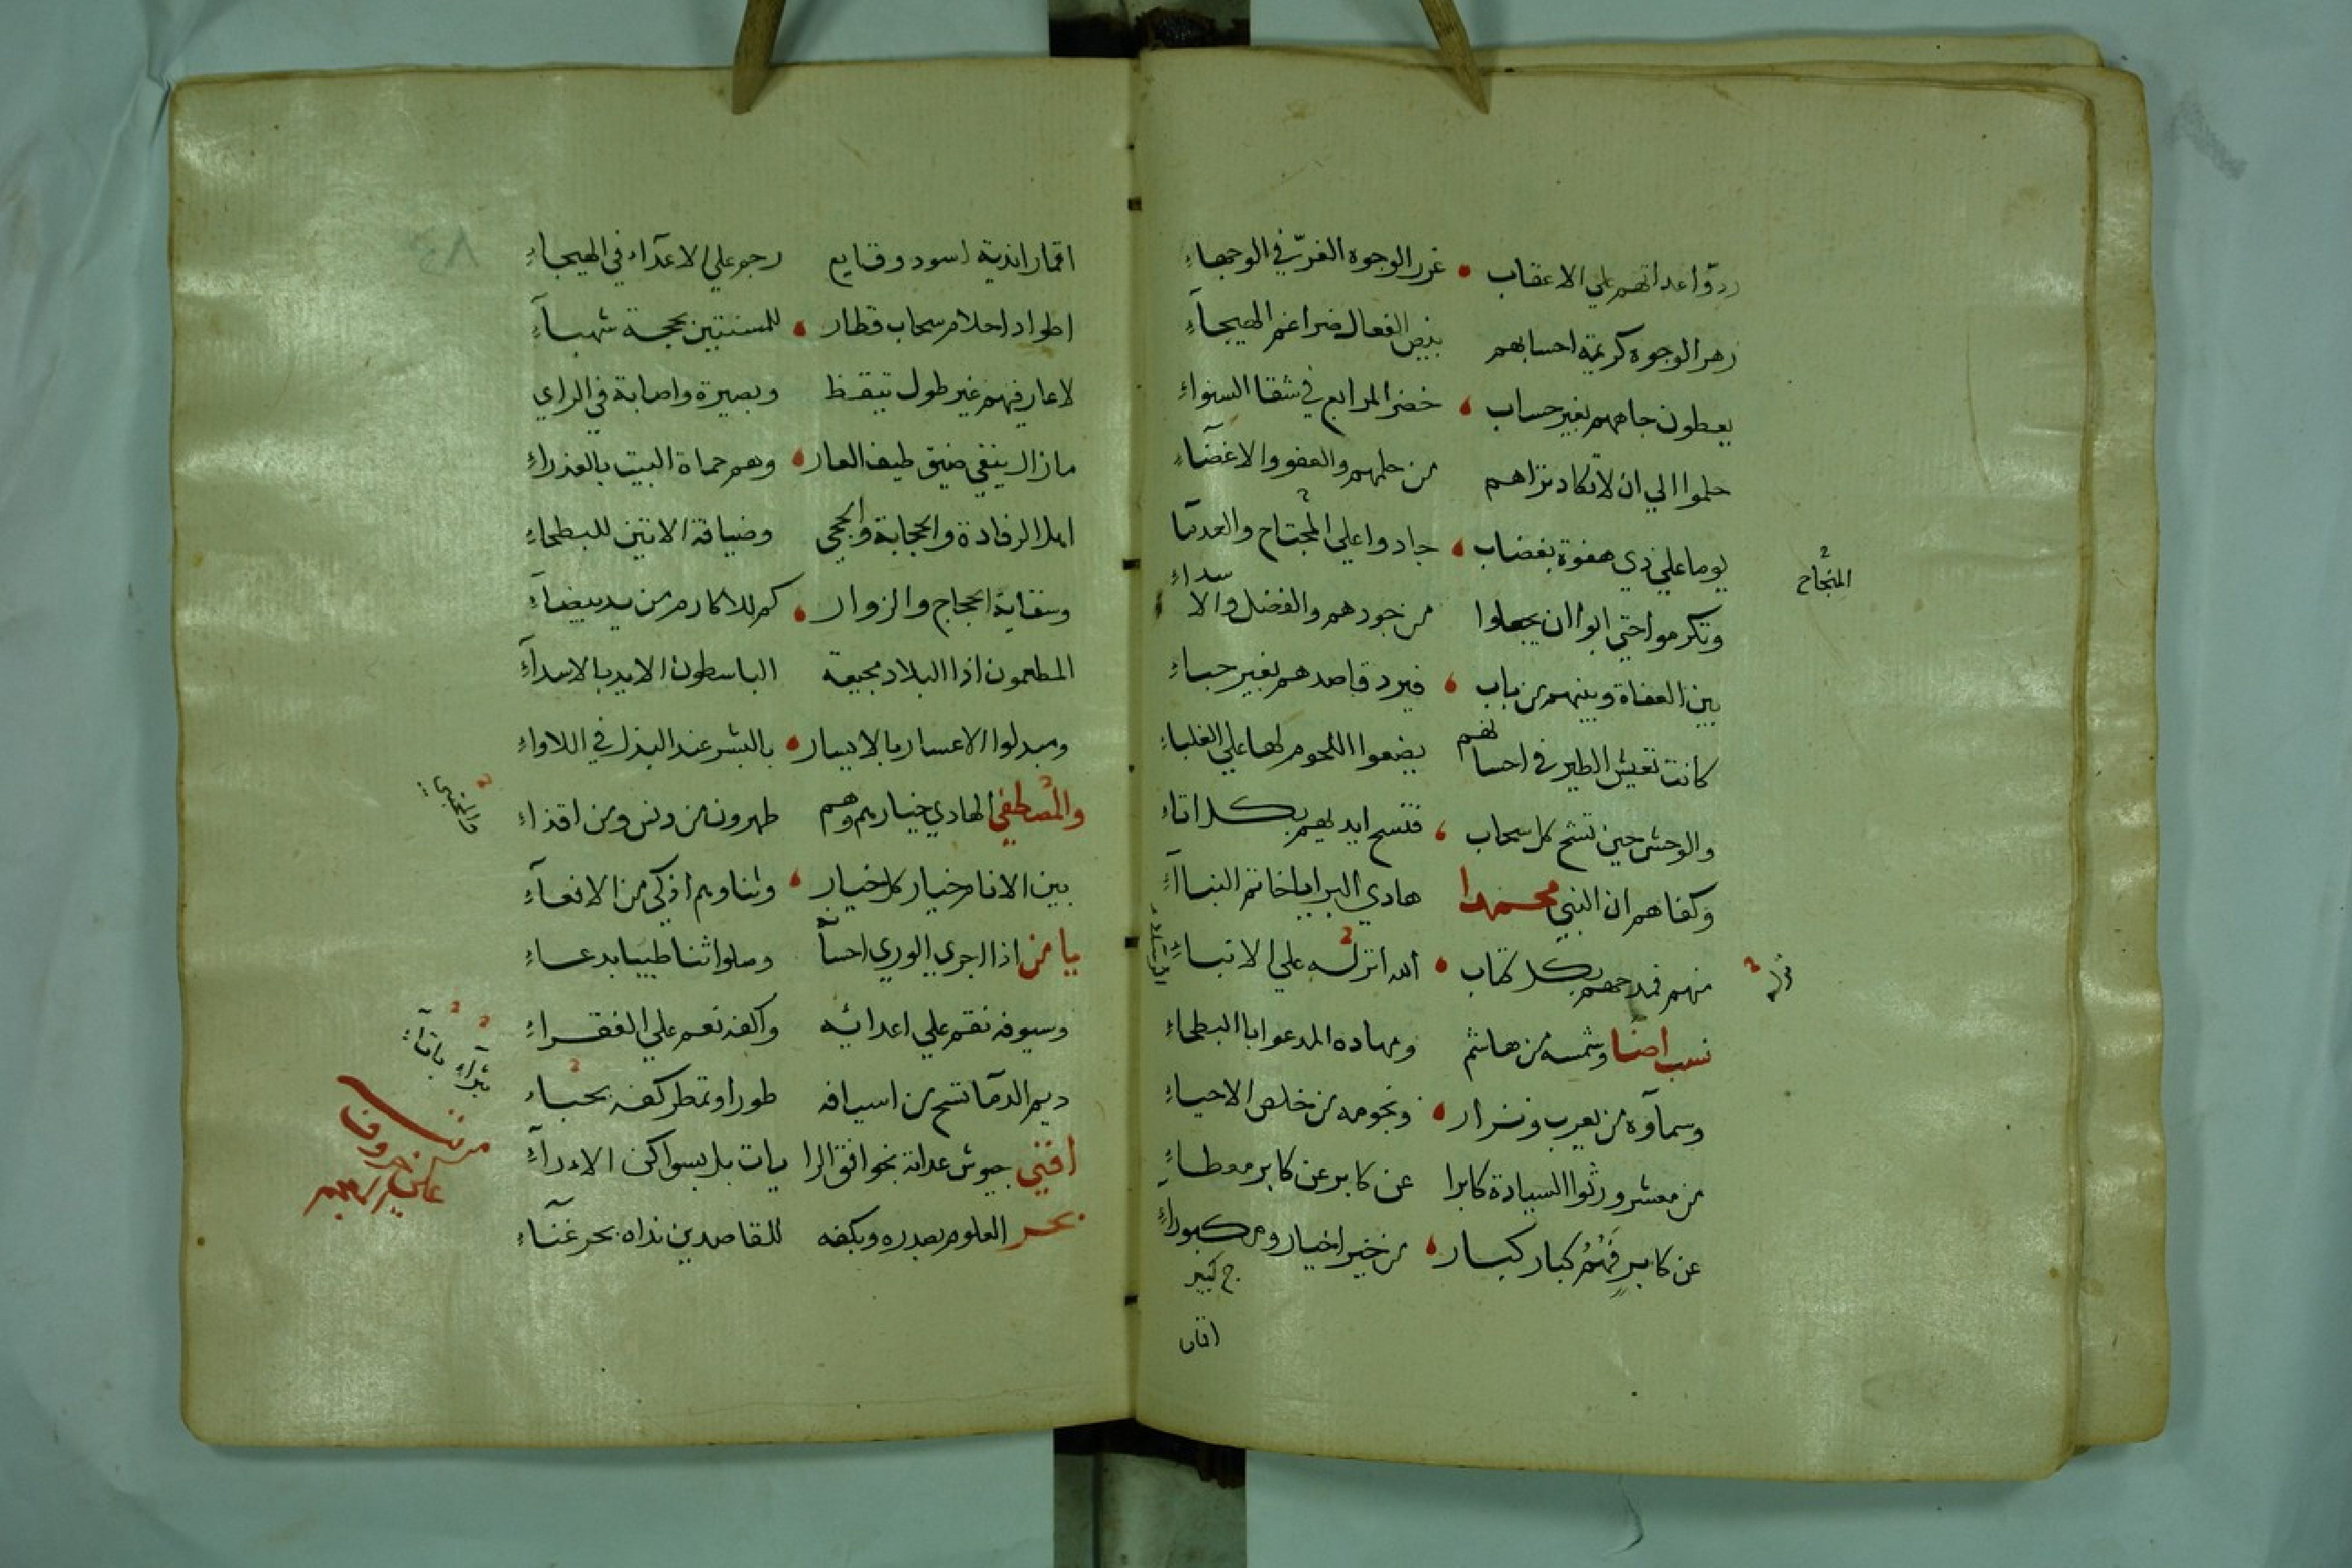 ردوا اعداتهم علي الاعقاب • غرر الوجوه الغرّ في الوجهاءِ
زهر الوجوه كريمة احسابهم بيض الفعال ضراغم الهيجآءِ
يعطون جاههم بغير حساب • خضر المرابع في شقا السنواءِ
حلموا الي ان لا تكاد تراهم من حلمهم والعفو والاغضآءِ
يوما علي ذي هفوة بغضاب • جادوا علي المجتاح والعدتا
المنجاح
وتكرموا حتي ابوا ان يجعلوا من جودهم والفضل والاسداءِ
بين العفاة وبينهم من باب • فيرد قاصدهم بغير حباءِ
كانت تعيش الطير في احسانهم يضعوا اللحوم لها علي العلياءِ
والوحش حين تشح كل سحاب • فتسح ايديهم بكل اتاءِ
وكفاهم ان النبي محمدا هادي البرايا خاتم النباآءِ
منهم فمدحهم بكل كتاب • الله انزله علي الانباءِ
نسب اضا وشمسه من هاشم ومهاده المدعو ابا البطحاءِ
وسمآوه من يعرب ونزار • ونجومه من خلص الاحياءِ
من معشر ورثوا السيادة كابرا عن كابر عن كابر معطاءِ
عن كابرٍ فَهُمُ كبار كبار • من خير اخيار ومن كبوراءِ
ج كبير
اقمار
اقمار اندية اسود وقايع رجوعلي الاعدآء في الهيجاءِ
اطواد احلام سحاب قطار • للمسنتين بحجة شهبآءِ
لا عار فيهم غير طول تيقظ وبصيرة واصابة في الراي
مازال ينفي ضيق طيف العار • وهم حماة البيت بالعذراءِ
اهل الرفادة والحجابة والحجي وضيافة الاتين للبطحاءِ
وسقاية الحجاج والزوار • كم للاكارم من يد بيضآءِ
المطعمون اذا البلاد مجيعة الباسطون الايد بالاسدآءِ
ومبدلوا الاعسار بالايسار • بالبشر عند البذل في اللاواءِ
والمصطفي الهادي خيارهم وهم طهرون من دنس ومن اقذاءِ
والمجتبي
بين الانام خيار كل خيار • وثناوهم اذكي من الانعآءِ
يا من اذا اجري الوري احسآ وصلوا ثنا طيبا بدعاءِ
وسيوفه نقم علي اعدائه واكفه نعم علي الفقراءِ
ديم الدمآ تسح من اسيافه طورا وتمطر كفه بحباء
افني جيوش عداته بخوافق الرا يات بل بسواكن الارآءِ
بحر العلوم بصدره وبكفه للقاصدين نداه بحر غنآءِ